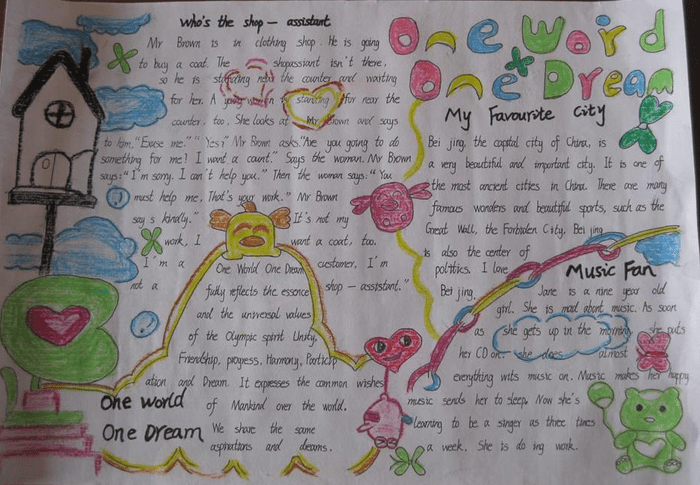 Who's the shop - assistant
Mr Brown is in clothing shop. He is going
to buy a coat. The shopassiant isn't there,
so he is standing near the counter and waiting
for her. A young woman is standing far near the
counter, too. She looks at Mr Brown and says
to him, "Excuse me." "Yes?" Mr Brown asks. "Are you going to do
something for me? I want a count." Says the woman. Mr Brown
says: "I'm sorry. I can't help you." Then the woman says: "You
must help me. That's your work." Mr Brown
say s kindly." It's not my
work, I want a coat, too.
I'm a customer, I'm
not a shop - assistant."
One World One Dream
fully reflects the essence
and the universal values
of the Olympic spirit Unity,
Friendship, progress, Harmony, Particip
ation and Dream. It expresses the common wishes
of Mankind over the world.
We share the same
aspirations and dreams.
One World
One Dream
One Word
One Dream
My Favourite City
Bei jing, the capital city of China, is
a very beautiful and important city. It is one of
the most ancient cities in China. There are many
famous wonders and beautiful sports, such as the
Great Wall, the Forbiden City. Bei jing
is also the center of
politics. I love
Bei jing.
Music Fan
Jane is a nine year old
girl. She is mad about music. As soon
as she gets up in the morning, she puts
her CD on. she does almost
everything wits music on. Music makes her happy
music sends her to sleep. Now she's
learning to be a singer as three times
a week. She is do ing work.